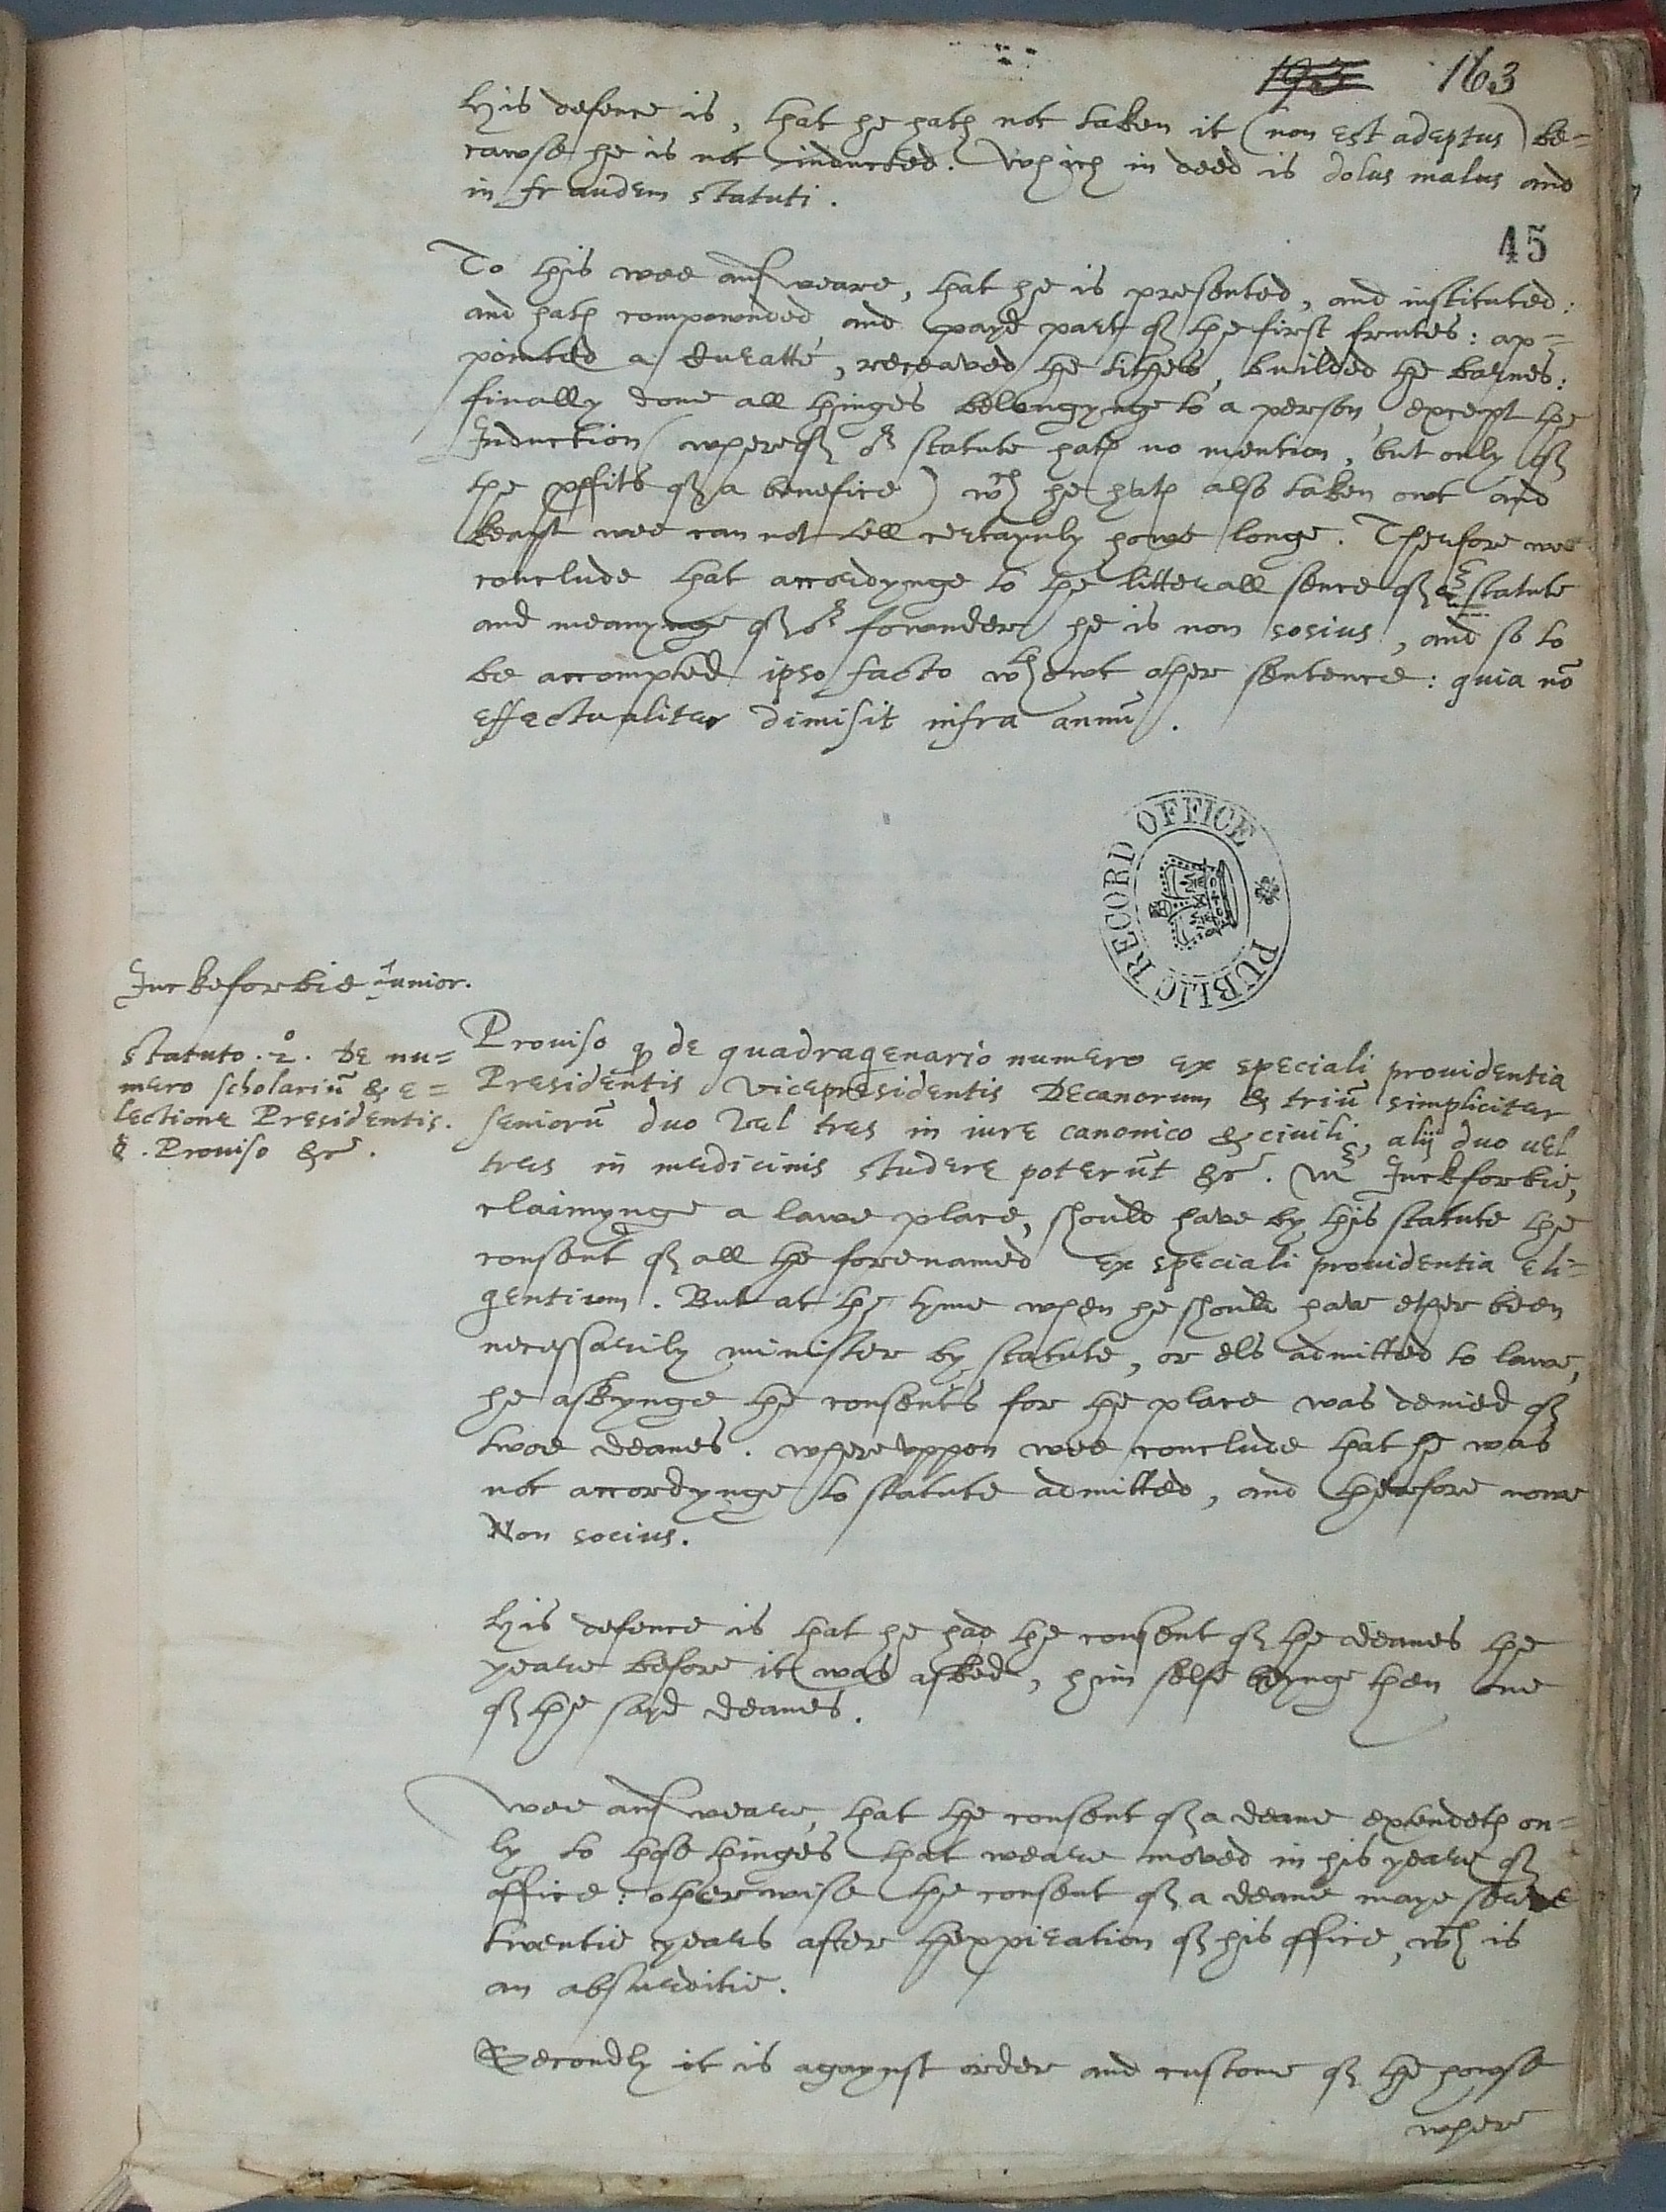 193 163
His defence is, that he hath not taken it (non est adeptus) be=
cawse he is not inducted. Which in deed is dolus malus and
in fraudem statuti.
45
To this wee answeare, that he is presented, and instituted:
and hath compownded and payd part of the first frutes: ap=
pointed a Curatte, receaved the tithes, builded the barnes:
finally done all thinges belongynge to a person, except the
Induction (whereof oʳ statute hath no mention, but only of
the ꝓfits of a benefice) wᶜʰ he hath also taken owt and
keapt wee can not tell certaynly howe longe. Therfore wee
conclude that accordynge to the litterall sence of oʳ statute
and meanynge of oʳ fownder he is non socius, and so to
be accompted ipso facto wᵗʰowt other sentence: quia nō
effectualiter dimisit infra annū.
PUBLIC RECORD OFFICE
Inckeforbie Iunior.
Statuto .2°. De nu=
mero scholariū & e=
lectione Presidentis.
§. Proviso &c.
Proviso ꝙ de quadragenario numero ex speciali providentia
Presidentis Vicepresidentis Decanorum & triū simpliciter
seniorū duo vel tres in iure canonico & civili, alij duo vel
tres in medicinis studere poterūt &c. Mʳ Inckforbie,
claimynge a lawe place, should have by this statute the
consent of all the forenamed ex speciali providentia eli=
gentium. But at the tyme when he should have ether been
necessarily minister by statute, or els admitted to lawe,
he askynge the consents for the place was denied of
twoe deanes. whereuppon wee conclude that he was
not accordynge to statute admitted, and therfore nowe
Non socius.
His defence is that he had the consent of the deanes the
yeare before it was asked, him selfe beynge then one
of the sayd deanes.
Wee answeare, that the consent of a deane extendeth on=
ly to those thinges that weare moved in his yeare of
office: otherwise the consent of a deane maye serve
twentie years after thexpiration of his office, wᶜʰ is
an absurditie.
Secondly it is agaynst order and custome of the howse
where